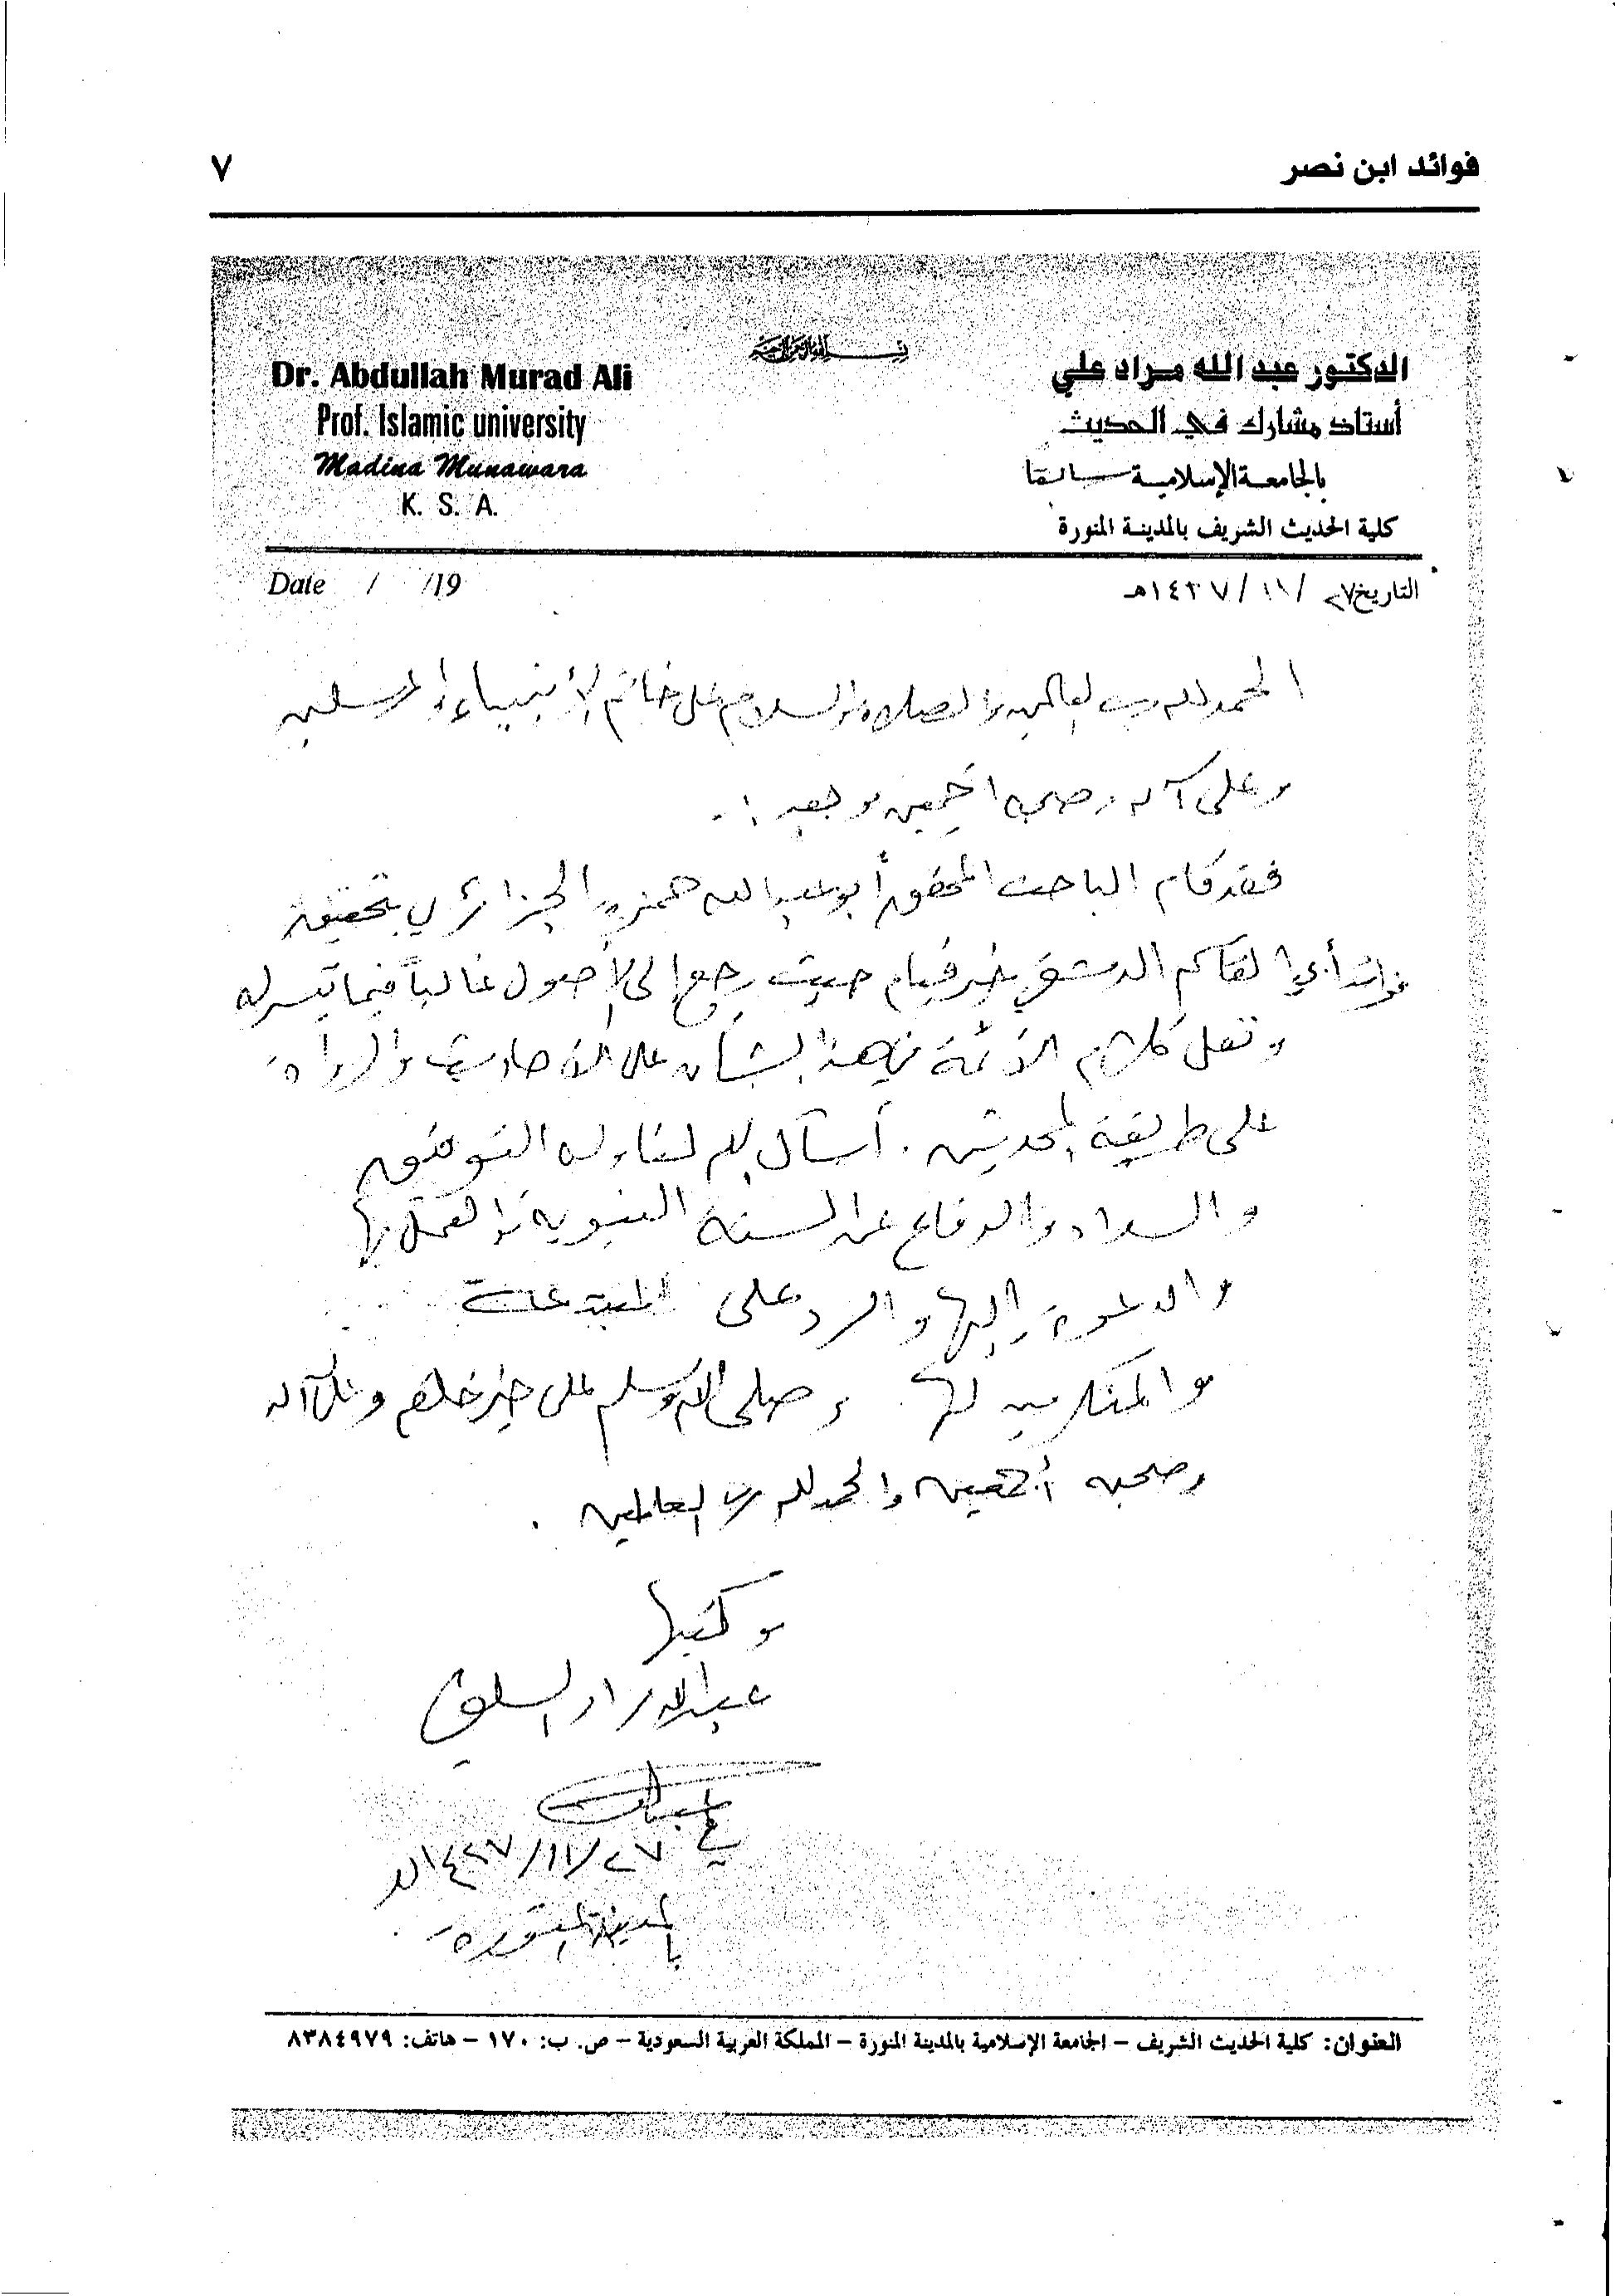 فوائد ابن نصر
٧
بسم الله الرحمن الرحيم
الدكتور عبد الله مراد علي
أستاذ مشارك في الحديث
بالجامعة الإسلامية سابقا
كلية الحديث الشريف بالمدينة المنورة
Dr. Abdullah Murad Ali
Prof. Islamic university
Madina Munawara
K. S. A.
التاريخ ٢٧/ ١١/ ١٤٣٧هـ
Date / /19
الحمد لله رب العالمين والصلاة والسلام على خاتم الأنبياء والمرسلين
وعلى آله وصحبه أجمعين وبعد :.
فقد قام الباحث المحقق أبو عبد الله حمزة الجزائري بتحقيق
فوائد أبي القاسم الدمشقي خير قيام حيث رجع إلى الأصول غالباً فيما تيسر له
ونقل كلام الأئمة في هذا الشأن على الأحاديث والرواة
على طريقة المحدثين . أسأل الله لنا وله التوفيق
والسداد والدفاع عن السنة النبوية والعمل بها
والدعوة إليها والرد على المبتدعة
والمنكرين لها وصلى الله وسلم على خير خلقه وعلى آله
وصحبه أجمعين والحمد لله رب العالمين .
وكتبها
عبد الله مراد السلفي
في ٢٧/١١/١٤٣٧هـ
بالمدينة المنورة
العنوان: كلية الحديث الشريف – الجامعة الإسلامية بالمدينة المنورة – المملكة العربية السعودية – ص. ب: ١٧٠ – هاتف: ٨٣٨٤٩٧٩